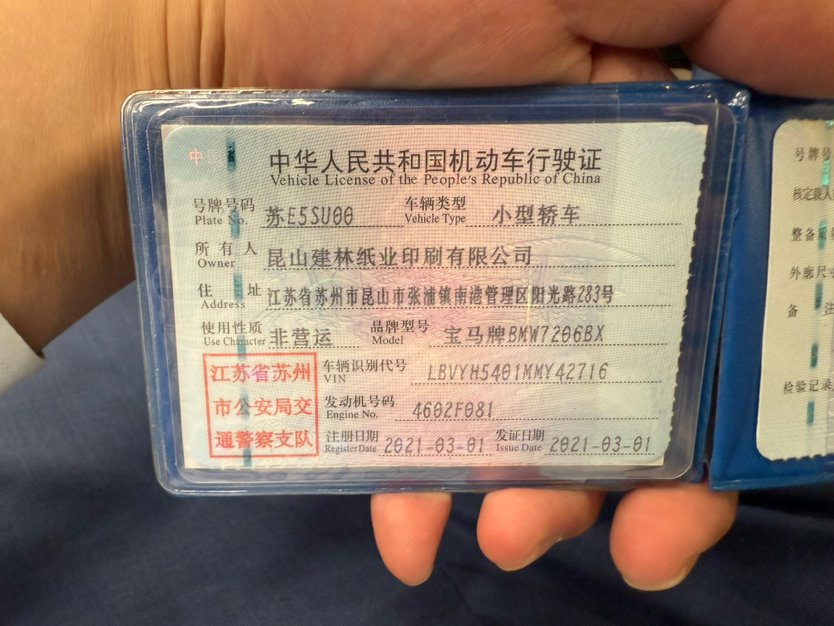 中华人民共和国机动车行驶证
Vehicle License of the People's Republic of China
号牌号码 苏E5SU00 车辆类型 小型轿车
Plate No. Vehicle Type
所有人 昆山建林纸业印刷有限公司
Owner
住址 江苏省苏州市昆山市张浦镇南港管理区阳光路283号
Address
使用性质 非营运 品牌型号 宝马牌BMW7206BX
Use Character Model
江苏省苏州
市公安局交
通警察支队
车辆识别代号 LBVYH5401MMY42716
VIN
发动机号码 4602F081
Engine No.
注册日期 2021-03-01 发证日期 2021-03-01
Register Date Issue Date
号牌号
核定载人
整备质
外廓尺寸
备 注
检验记录